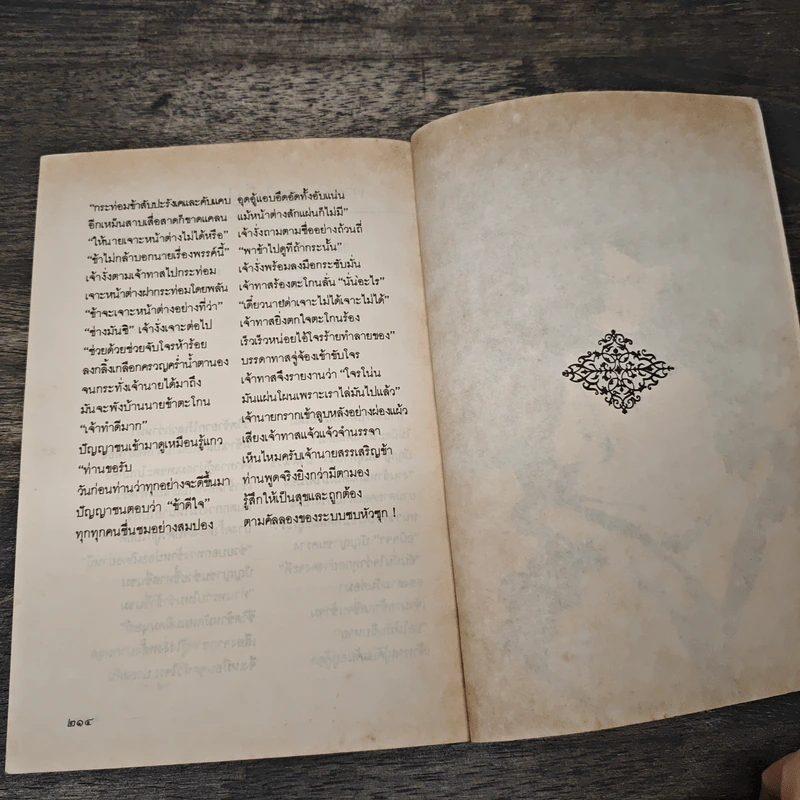 “กระท่อมข้าสับปะรังเคและคับแคบ อุดอู้แอบอึดอัดทั้งอับแน่น
อีกเหม็นสาบเสื่อสาดก็ขาดแคลน แม้หน้าต่างสักแผ่นก็ไม่มี”
“ให้นายเจาะหน้าต่างไม่ได้หรือ” เจ้างั่งถามตามซื่ออย่างถ้วนถี่
“ข้าไม่กล้าบอกนายเรื่องพรรค์นี้” “พาข้าไปดูทีถ้ากระนั้น”
เจ้างั่งตามเจ้าทาสไปกระท่อม เจ้างั่งพร้อมลงมือกระชับมั่น
เจาะหน้าต่างฝากระท่อมโดยพลัน เจ้าทาสร้องตะโกนลั่น “นั่นอะไร”
“ข้าจะเจาะหน้าต่างอย่างที่ว่า” “เดี๋ยวนายด่าเจาะไม่ได้เจาะไม่ได้”
“ช่างมันซิ” เจ้างั่งเจาะต่อไป เจ้าทาสยิ่งตกใจตะโกนร้อง
“ช่วยด้วยช่วยจับโจรห้าร้อย เร็วเร็วหน่อยไอ้โจรร้ายทำลายของ”
ลงกลิ้งเกลือกครวญคร่ำน้ำตานอง บรรดาทาสจู่จ้องเข้าขับโจร
จนกระทั่งเจ้านายได้มาถึง เจ้าทาสจึงรายงานว่า “โจรโน่น
มันจะพังบ้านนายข้าตะโกน มันแผ่นโผนเพราะเราไล่มันไปแล้ว”
“เจ้าทำดีมาก” เจ้านายกรากเข้าลูบหลังอย่างผ่องแผ้ว
ปัญญาชนเข้ามาดูเหมือนรู้แกว เสียงเจ้าทาสแจ้วแจ้วจำนรรจา
“ท่านขอรับ เห็นไหมครับเจ้านายสรรเสริญข้า
วันก่อนท่านว่าทุกอย่างจะดีขึ้นมา ท่านพูดจริงยิ่งกว่ามีตามอง
ปัญญาชนตอบว่า “ข้าดีใจ” รู้สึกให้เป็นสุขและถูกต้อง
ทุกทุกคนชื่นชมอย่างสมปอง ตามคัลลองของระบบซบหัวซุก !
๒๑๔